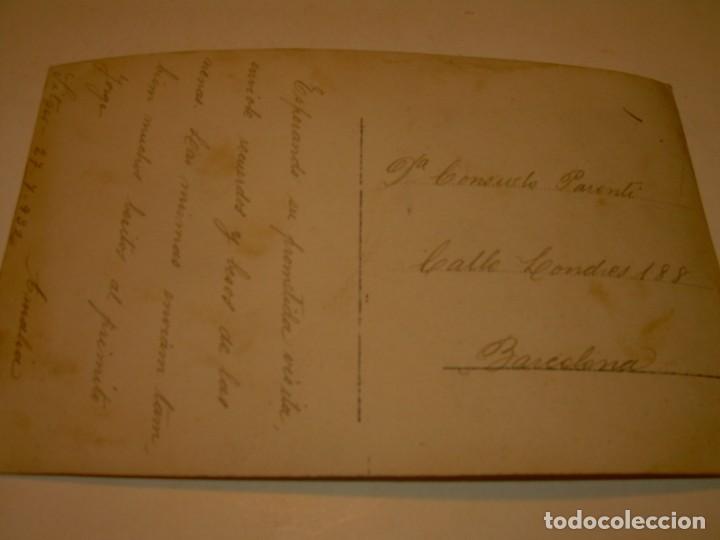 Esperando su prometida visita,
enviole recuerdos y besos de las
nenas. Las mismas envian tam-
bien muchos besitos al primito
Jorge
27-7-932 Amalia
Dª Consuelo Parenti
Calle Londres 188
Barcelona
todocoleccion